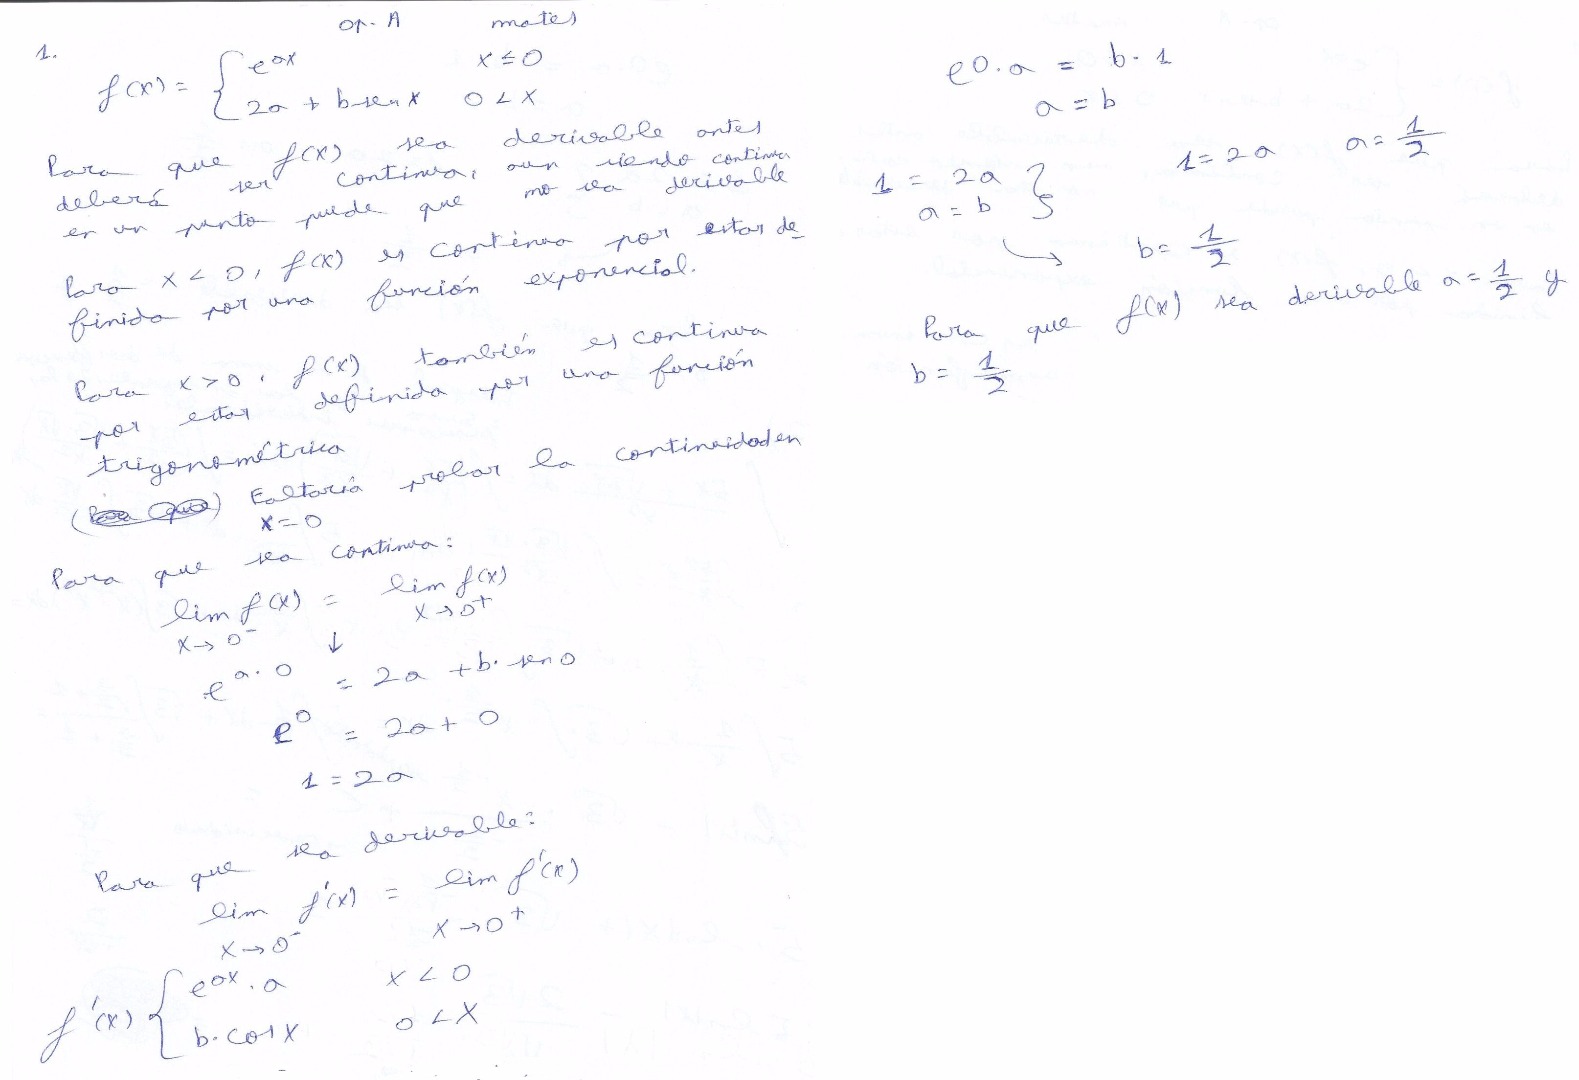 op. A mates
1.
f(x) = { e^{ax} x ≤ 0
2a + b sen x 0 < x
Para que f(x) sea derivable antes
deberá ser continua, aun siendo continua
en un punto puede que no sea derivable
Para x < 0, f(x) es continua por estar de
finida por una función exponencial.
Para x > 0, f(x) también es continua
por estar definida por una función
trigonométrica
Faltaría probar la continuidad en
x = 0
Para que sea continua:
lim f(x) = lim f(x)
x→0⁻ ↓ x→0⁺
e^{a·0} = 2a + b· sen 0
e⁰ = 2a + 0
1 = 2a
Para que sea derivable:
lim f'(x) = lim f'(x)
x→0⁻ x→0⁺
f'(x) { e^{ax}·a x < 0
b·cos x 0 < x
e⁰·a = b·1
a = b
1 = 2a } 1 = 2a a = 1/2
a = b
→ b = 1/2
Para que f(x) sea derivable a = 1/2 y
b = 1/2